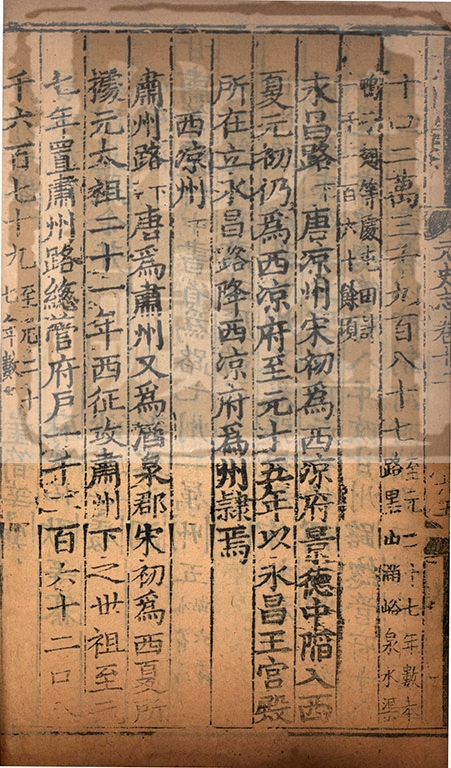 元史志卷十二
十四二萬三千九百八十七至元二十七年數本路黑山滿峪泉水渠
鴨子翅等處屯田計一千一百六十餘頃
永昌路下唐凉州宋初為西凉府景德中䧟入西
夏元初仍為西凉府至元十五年以永昌王宫殿
所在立永昌路降西凉府為州隸焉
西凉州下
肅州路下唐為肅州又為酒泉郡宋初為西夏所
據元太祖二十一年西征攻肅州下之世祖至元
七年置肅州路總管府戶一千二百六十二口八
千六百七十九至元二十七年數